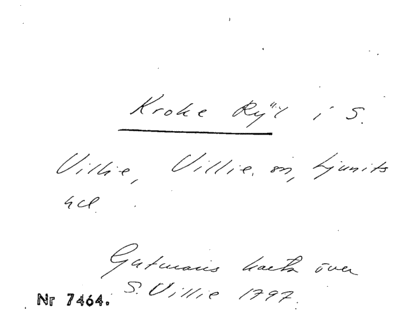 Kroke Rÿl i S.
Villie, Villie sn, Ljunits
hd.
Gutmans karta över
S. Villie 1797.
Nr 7464.